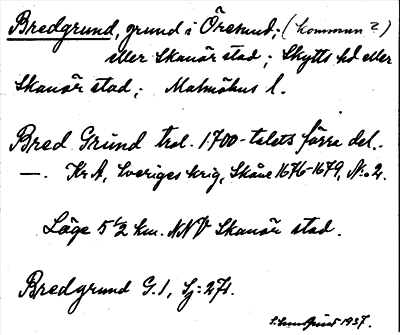 Bredgrund, grund i Öresund; (kommun?)
eller Skanör stad; Skytts hd eller
Skanör stad; Malmöhus l.
Bred Grund trol. 1700-talets förra del.
—. KrA, Sveriges krig, Skåne 1676-1679, No 2.
Läge 5 1/2 km. NNV Skanör stad.
Bredgrund G.1, Sj: 271.
1937.